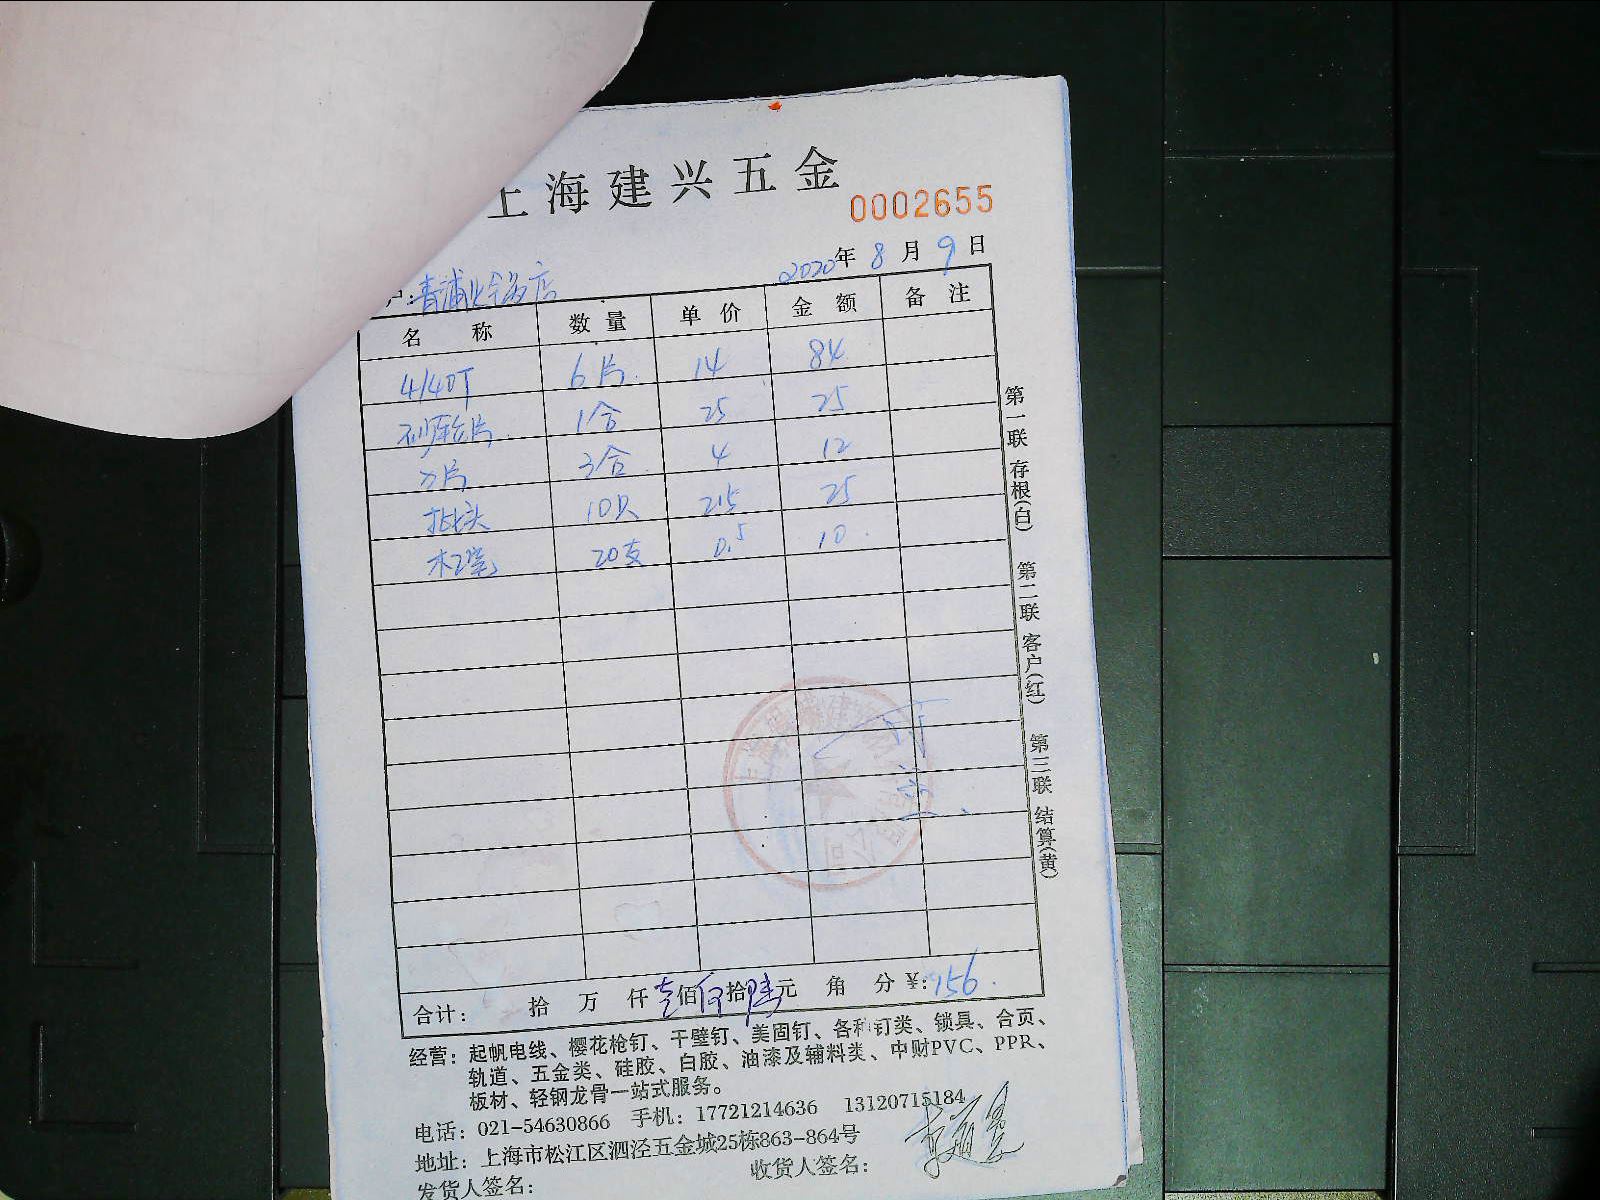 上海建兴五金
0002655
2020年 8 月 9 日
户：青浦业务店
名 称 数 量 单 价 金 额 备 注
4/40T 6片 14 84
砂轮片 1合 25 25
刀片 3合 4 12
批头 10只 2.5 25
木工笔 20支 0.5 10
第一联 存根(白) 第二联 客户(红) 第三联 结算(黄)
合计： 拾 万 仟 壹佰伍拾陆元 角 分 ¥：156.
经营：起帆电线、樱花枪钉、干壁钉、美固钉、各种钉类、锁具、合页、
轨道、五金类、硅胶、白胶、油漆及辅料类、中财PVC、PPR、
板材、轻钢龙骨一站式服务。
电话：021-54630866 手机：17721214636 13120715184
地址：上海市松江区泗泾五金城25栋863-864号
发货人签名： 收货人签名：